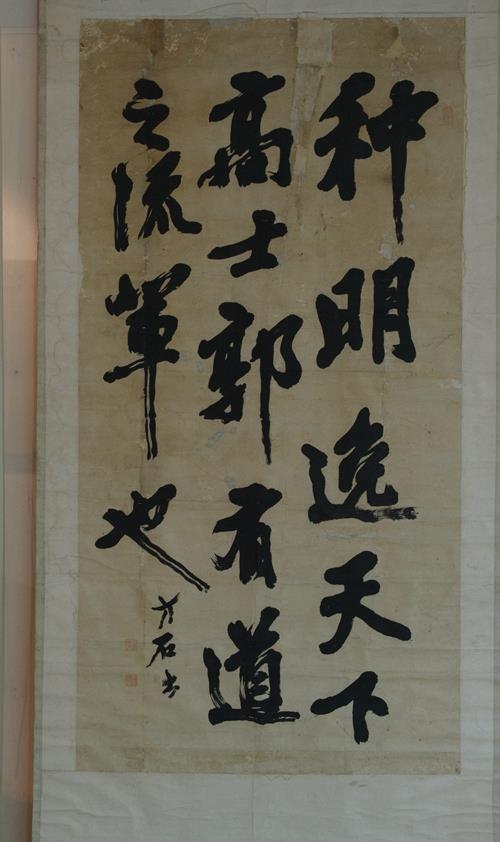 种明逸天下
高士郭有道
之流軰也
石书